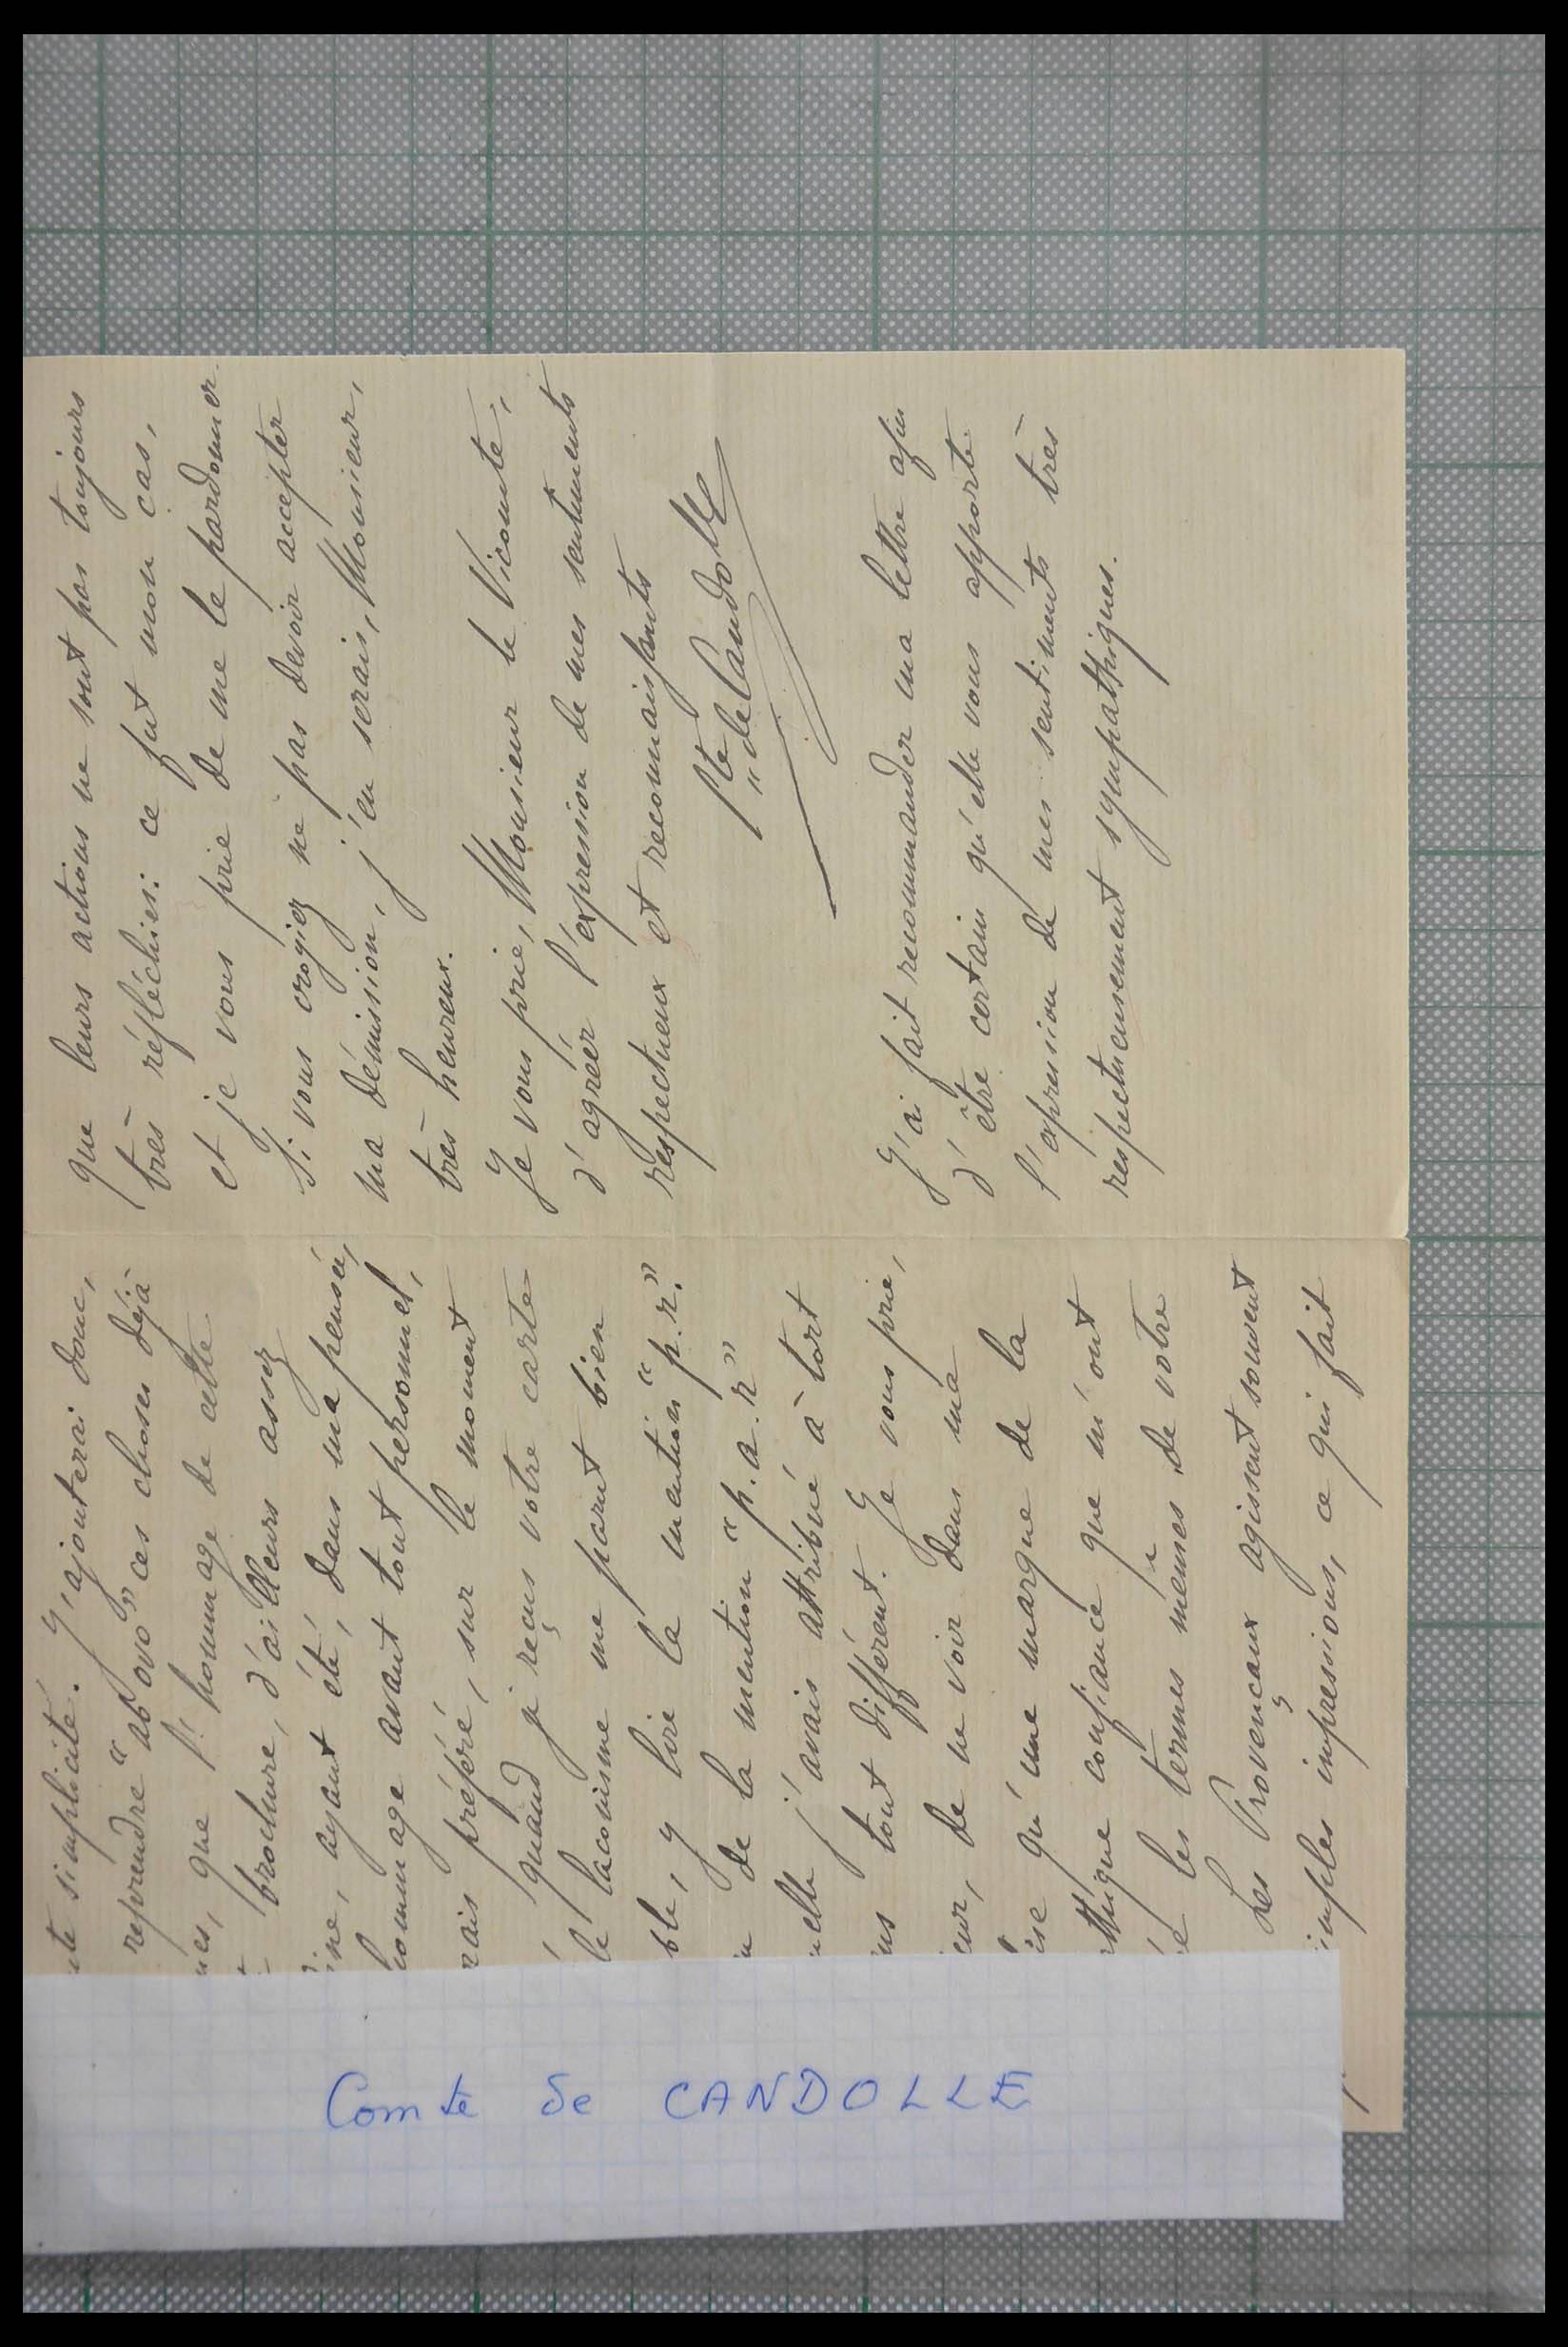 Comte de CANDOLLE
simplicité. J'ajouterai donc,
reprendre "ab ovo" ces choses déjà
que l'hommage de cette
brochure, d'ailleurs assez
ayant été, dans ma pensée,
avant tout personnel,
préféré, sur le moment
quand je reçus votre carte
laconisme me parut bien
y lire la mention "p.r."
de la mention "p.a.r"
j'avais attribué à tort
tout différent. Je vous prie,
de ne voir dans ma
qu'une marque de la
confiance que m'ont
les termes mêmes de votre
Les Provençaux agissent souvent
impressions, ce qui fait
que leurs actions ne sont pas toujours
très réfléchies: ce fut mon cas,
et je vous prie de me le pardonner.
Si vous croyiez ne pas devoir accepter
ma démission, j'en serais, Monsieur,
très heureux.
Je vous prie, Monsieur le Vicomte,
d'agréer l'expression de mes sentiments
respectueux et reconnaissants
Cte de Candolle
J'ai fait recommander ma lettre afin
d'être certain qu'elle vous apporte
l'expression de mes sentiments très
respectueusement sympathiques.